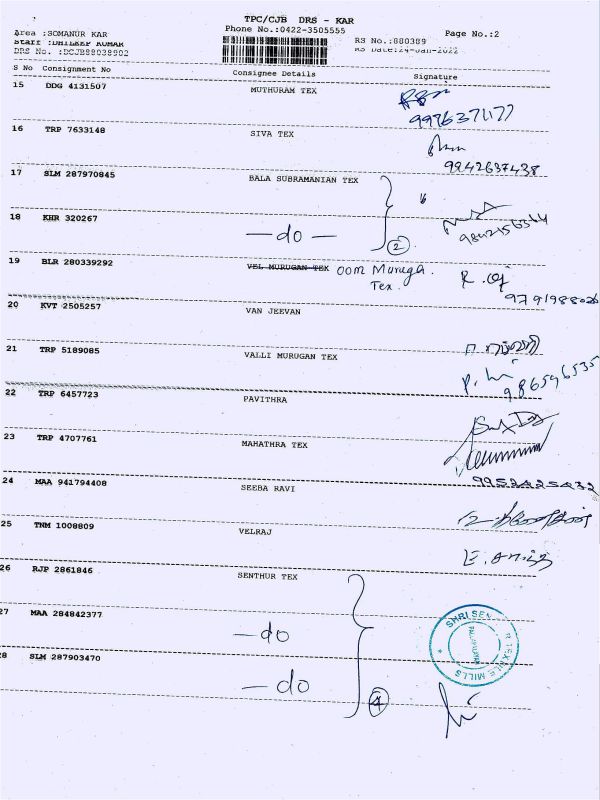 TPC/CJB DRS - KAR
Area :SOMANUR KAR
Phone No.:0422-3505555
Page No.:2
Staff :DHILEEP KUMAR
RS No.:880389
DRS No. :DCJB88038902
RS Date:24-Jan-2022
S No Consignment No Consignee Details Signature
15 DDG 4131507 MUTHURAM TEX
9976371177
16 TRP 7633148 SIVA TEX
9942637438
17 SLM 287970845 BALA SUBRAMANIAN TEX
18 KHR 320267 —do— 2
9842156364
19 BLR 280339292 VEL MURUGAN TEX OOM Muruga Tex. R.
9791988026
20 KVT 2505257 VAN JEEVAN
21 TRP 5189085 VALLI MURUGAN TEX
986596535
22 TRP 6457723 PAVITHRA
23 TRP 4707761 MAHATHRA TEX
9952425432
24 MAA 941794408 SEEBA RAVI
25 TNM 1008809 VELRAJ
26 RJP 2861846 SENTHUR TEX
27 MAA 284842377 —do
28 SLM 287903470 —do 4
SHRI SEN TEXTILE MILLS